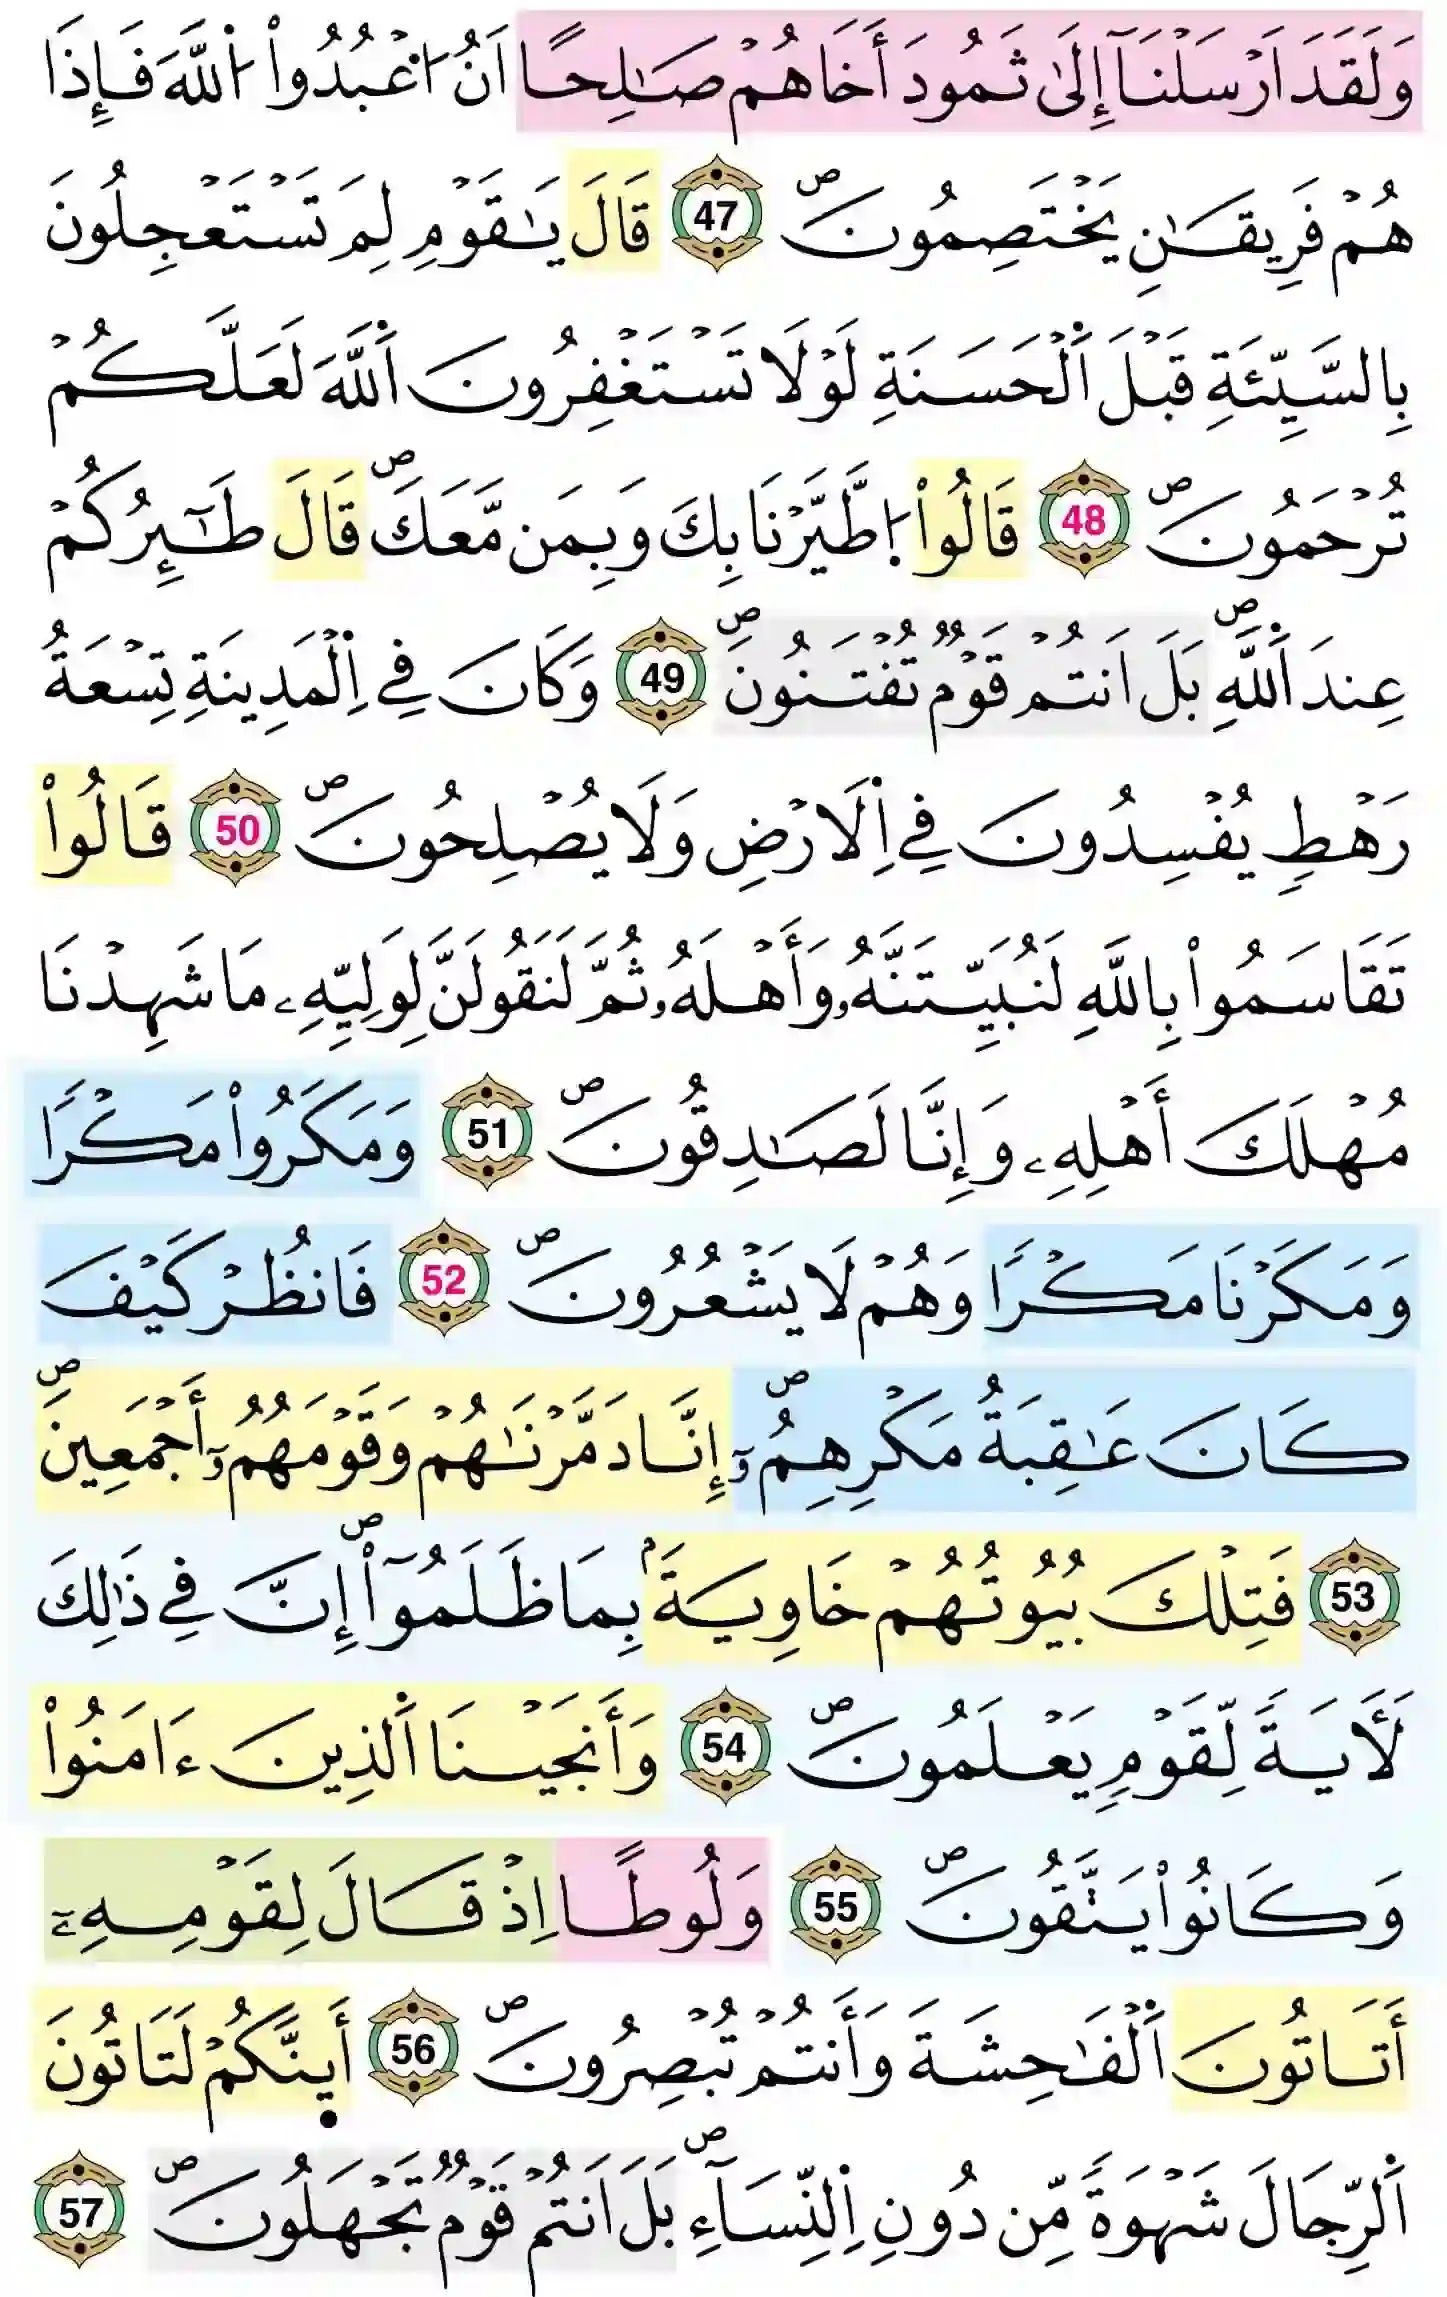 وَلَقَدَ اَرْسَلْنَآ إِلَىٰ ثَمُودَ أَخَاهُمْ صَٰلِحًا اَنُ ا۟عْبُدُواْ اُ۬للَّهَ فَإِذَا
هُمْ فَرِيقَٰنِ يَخْتَصِمُونَۖ 47 قَالَ يَٰقَوْمِ لِمَ تَسْتَعْجِلُونَ
بِالسَّيِّئَةِ قَبْلَ اَ۬لْحَسَنَةِ لَوْلَا تَسْتَغْفِرُونَ اَ۬للَّهَ لَعَلَّكُمْ
تُرْحَمُونَۖ 48 قَالُواْ اُ۪طَّيَّرْنَا بِكَ وَبِمَن مَّعَكَۖ قَالَ طَٰٓئِرُكُمْ
عِندَ اَ۬للَّهِۖ بَلَ اَنتُمْ قَوْمٞ تُفْتَنُونَۖ 49 وَكَانَ فِے اِ۬لْمَدِينَةِ تِسْعَةُ
رَهْطٖ يُفْسِدُونَ فِے اِ۬لَارْضِ وَلَا يُصْلِحُونَۖ 50 قَالُواْ
تَقَاسَمُواْ بِاللَّهِ لَنُبَيِّتَنَّهُۥ وَأَهْلَهُۥ ثُمَّ لَنَقُولَنَّ لِوَلِيِّهِۦ مَا شَهِدْنَا
مُهْلَكَ أَهْلِهِۦ وَإِنَّا لَصَٰدِقُونَۖ 51 وَمَكَرُواْ مَكْراٗ
وَمَكَرْنَا مَكْراٗ وَهُمْ لَا يَشْعُرُونَۖ 52 فَانظُرْ كَيْفَ
كَانَ عَٰقِبَةُ مَكْرِهِمُۥٓۖ إِنَّا دَمَّرْنَٰهُمْ وَقَوْمَهُمُۥٓ أَجْمَعِينَۖ
53 فَتِلْكَ بُيُوتُهُمْ خَاوِيَةَۢ بِمَا ظَلَمُوٓاْۖ إِنَّ فِے ذَٰلِكَ
لَأٓيَةٗ لِّقَوْمٖ يَعْلَمُونَۖ 54 وَأَنجَيْنَا اَ۬لذِينَ ءَامَنُواْ
وَكَانُواْ يَتَّقُونَۖ 55 وَلُوطًا اِذْ قَالَ لِقَوْمِهِۦٓ
أَتَاتُونَ اَ۬لْفَٰحِشَةَ وَأَنتُمْ تُبْصِرُونَۖ 56 أَى۪نَّكُمْ لَتَاتُونَ
اَ۬لرِّجَالَ شَهْوَةٗ مِّن دُونِ اِ۬لنِّسَآءِۖ بَلَ اَنتُمْ قَوْمٞ تَجْهَلُونَۖ 57